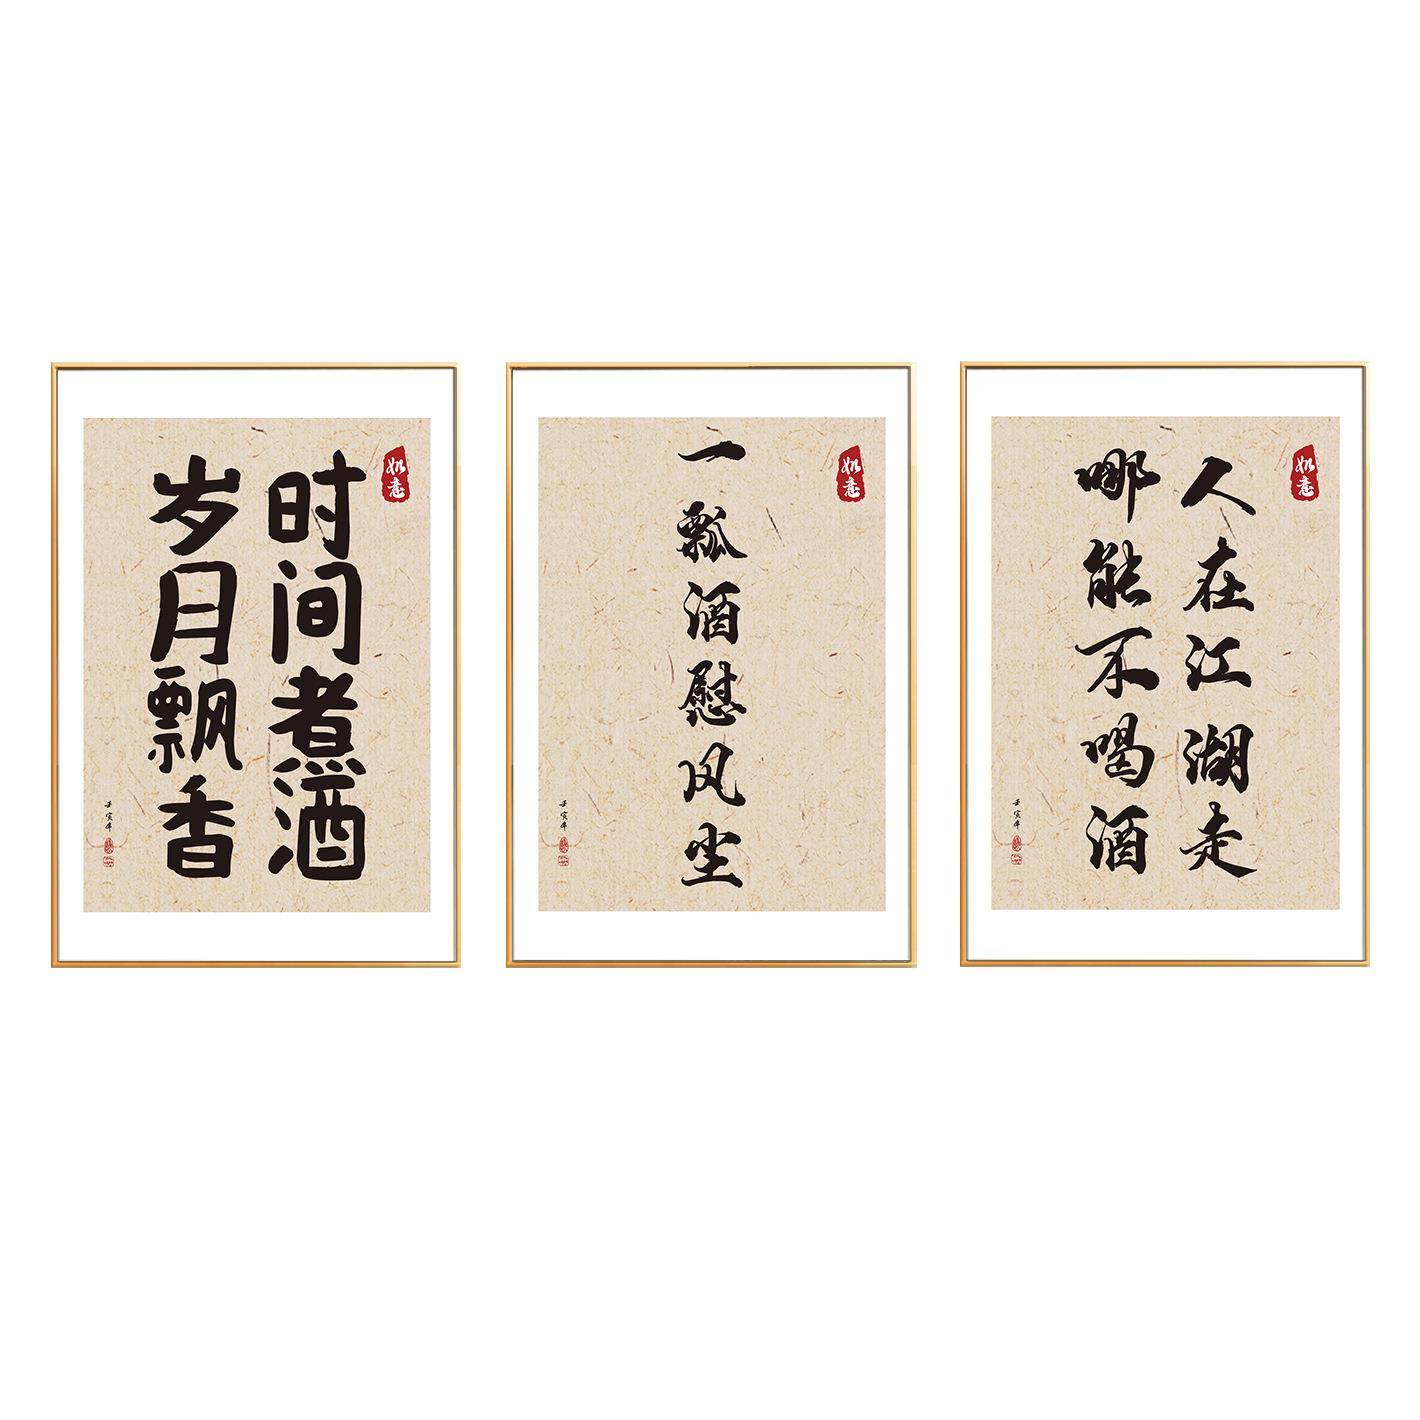 如意
时间煮酒
岁月飘香
壬寅年
如意
一瓢酒慰风尘
壬寅年
如意
人在江湖走
哪能不喝酒
壬寅年